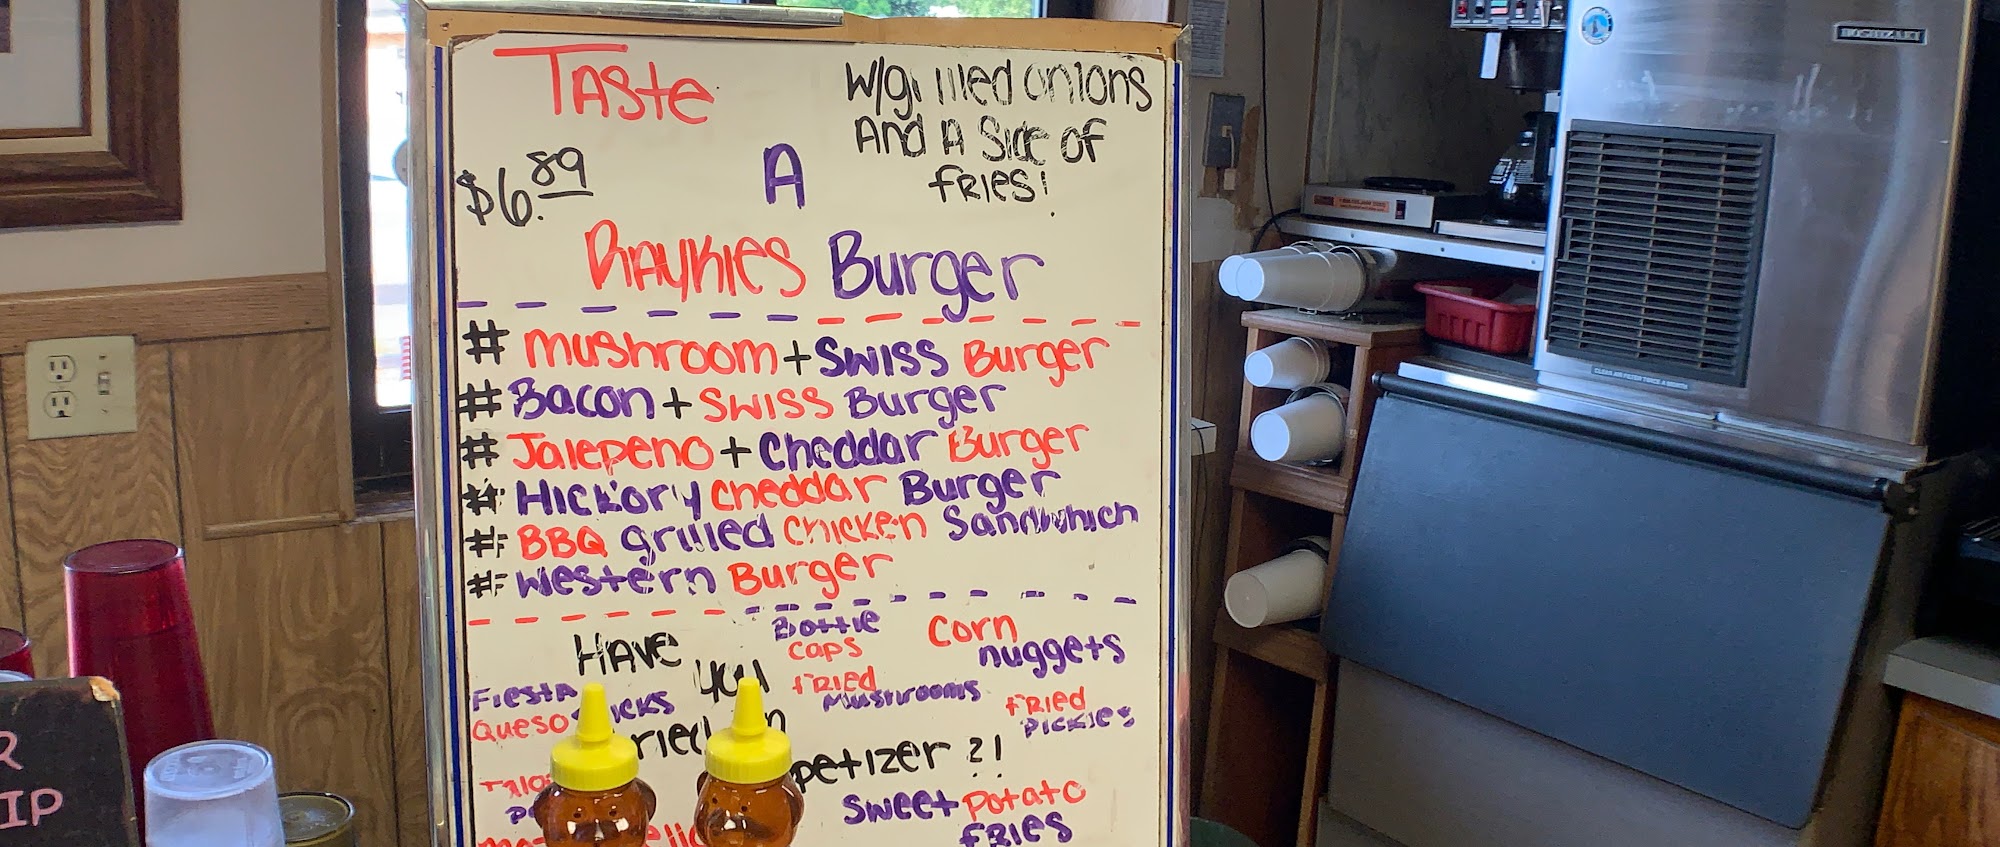 Taste
A
$6.89
w/grilled onions
And A Side of
fries!
Raykies Burger
# Mushroom + Swiss Burger
# Bacon + Swiss Burger
# Jalepeno + Cheddar Burger
# Hickory Cheddar Burger
# BBQ grilled chicken Sandwhich
# Western Burger
Have you
petizer?!
Bottle
caps
Corn
nuggets
Fiesta
Queso
fried
Mushrooms
fried
Pickles
Sweet potato
fries
HOSHIZAKI
CLEAN AIR FILTER TWICE A MONTH
R
IP